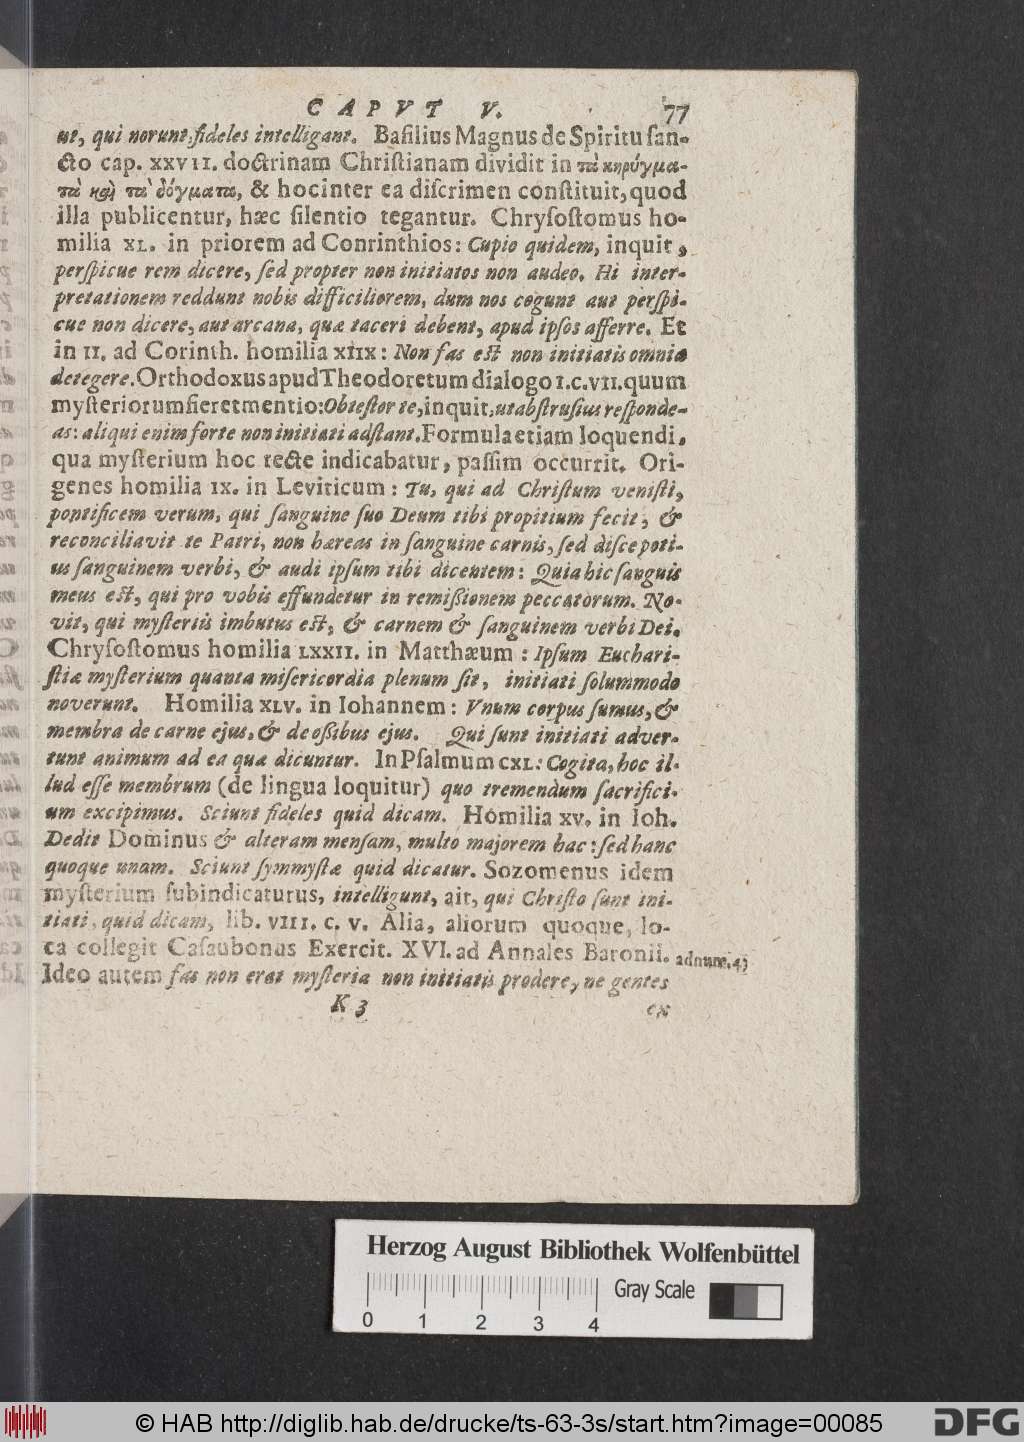 CAPVT V. 77
ut, qui norunt, fideles intelligant. Baſilius Magnus de Spiritu ſan-
cto cap. XXVII. doctrinam Chriſtianam dividit in τὰ κηρύγμα-
τα καὶ τὰ δόγματα, & hoc inter ea diſcrimen conſtituit, quod
illa publicentur, hæc ſilentio tegantur. Chryſoſtomus ho-
milia XL. in priorem ad Conrinthios: Cupio quidem, inquit,
perſpicue rem dicere, ſed propter non initiatos non audeo. Hi inter-
pretationem reddunt nobis difficiliorem, dum nos cogunt aut perſpi-
cue non dicere, aut arcana, quæ taceri debent, apud ipſos afferre. Et
in II. ad Corinth. homilia XIIX: Non fas eſt non initiatis omnia
detegere. Orthodoxus apud Theodoretum dialogo I. c. VII. quum
myſteriorum fieret mentio: Obteſtor te, inquit, ut abſtruſius reſponde-
as: aliqui enim forte non initiati adſtant. Formula etiam loquendi,
qua myſterium hoc tecte indicabatur, paſſim occurrit. Ori-
genes homilia IX. in Leviticum: Tu, qui ad Chriſtum veniſti,
pontificem verum, qui ſanguine ſuo Deum tibi propitium fecit, &
reconciliavit te Patri, non hæreas in ſanguine carnis, ſed diſce poti-
us ſanguinem verbi, & audi ipſum tibi dicentem: Quia hic ſanguis
meus eſt, qui pro vobis effundetur in remißionem peccatorum. No-
vit, qui myſteriis imbutus eſt, & carnem & ſanguinem verbi Dei.
Chryſoſtomus homilia LXXII. in Matthæum: Ipſum Euchari-
ſtiæ myſterium quanta miſericordia plenum ſit, initiati ſolummodo
noverunt. Homilia XLV. in Iohannem: Vnum corpus ſumus, &
membra de carne ejus, & de oßibus ejus. Qui ſunt initiati adver-
tunt animum ad ea quæ dicuntur. In Pſalmum CXL: Cogita, hoc il-
lud eſſe membrum (de lingua loquitur) quo tremendum ſacrifici-
um excipimus. Sciunt fideles quid dicam. Homilia XV. in Ioh.
Dedit Dominus & alteram menſam, multo majorem hac: ſed hanc
quoque unam. Sciunt ſymmyſtæ quid dicatur. Sozomenus idem
myſterium ſubindicaturus, intelligunt, ait, qui Chriſto ſunt ini-
tiati, quid dicam, lib. VIII. c. V. Alia, aliorum quoque, lo-
ca collegit Caſaubonus Exercit. XVI. ad Annales Baronii. ad num. 43
Ideo autem fas non erat myſteria non initiatis prodere, ne gentes
K 3 ex
Herzog August Bibliothek Wolfenbüttel
Gray Scale
0 1 2 3 4
© HAB http://diglib.hab.de/drucke/ts-63-3s/start.htm?image=00085
DFG